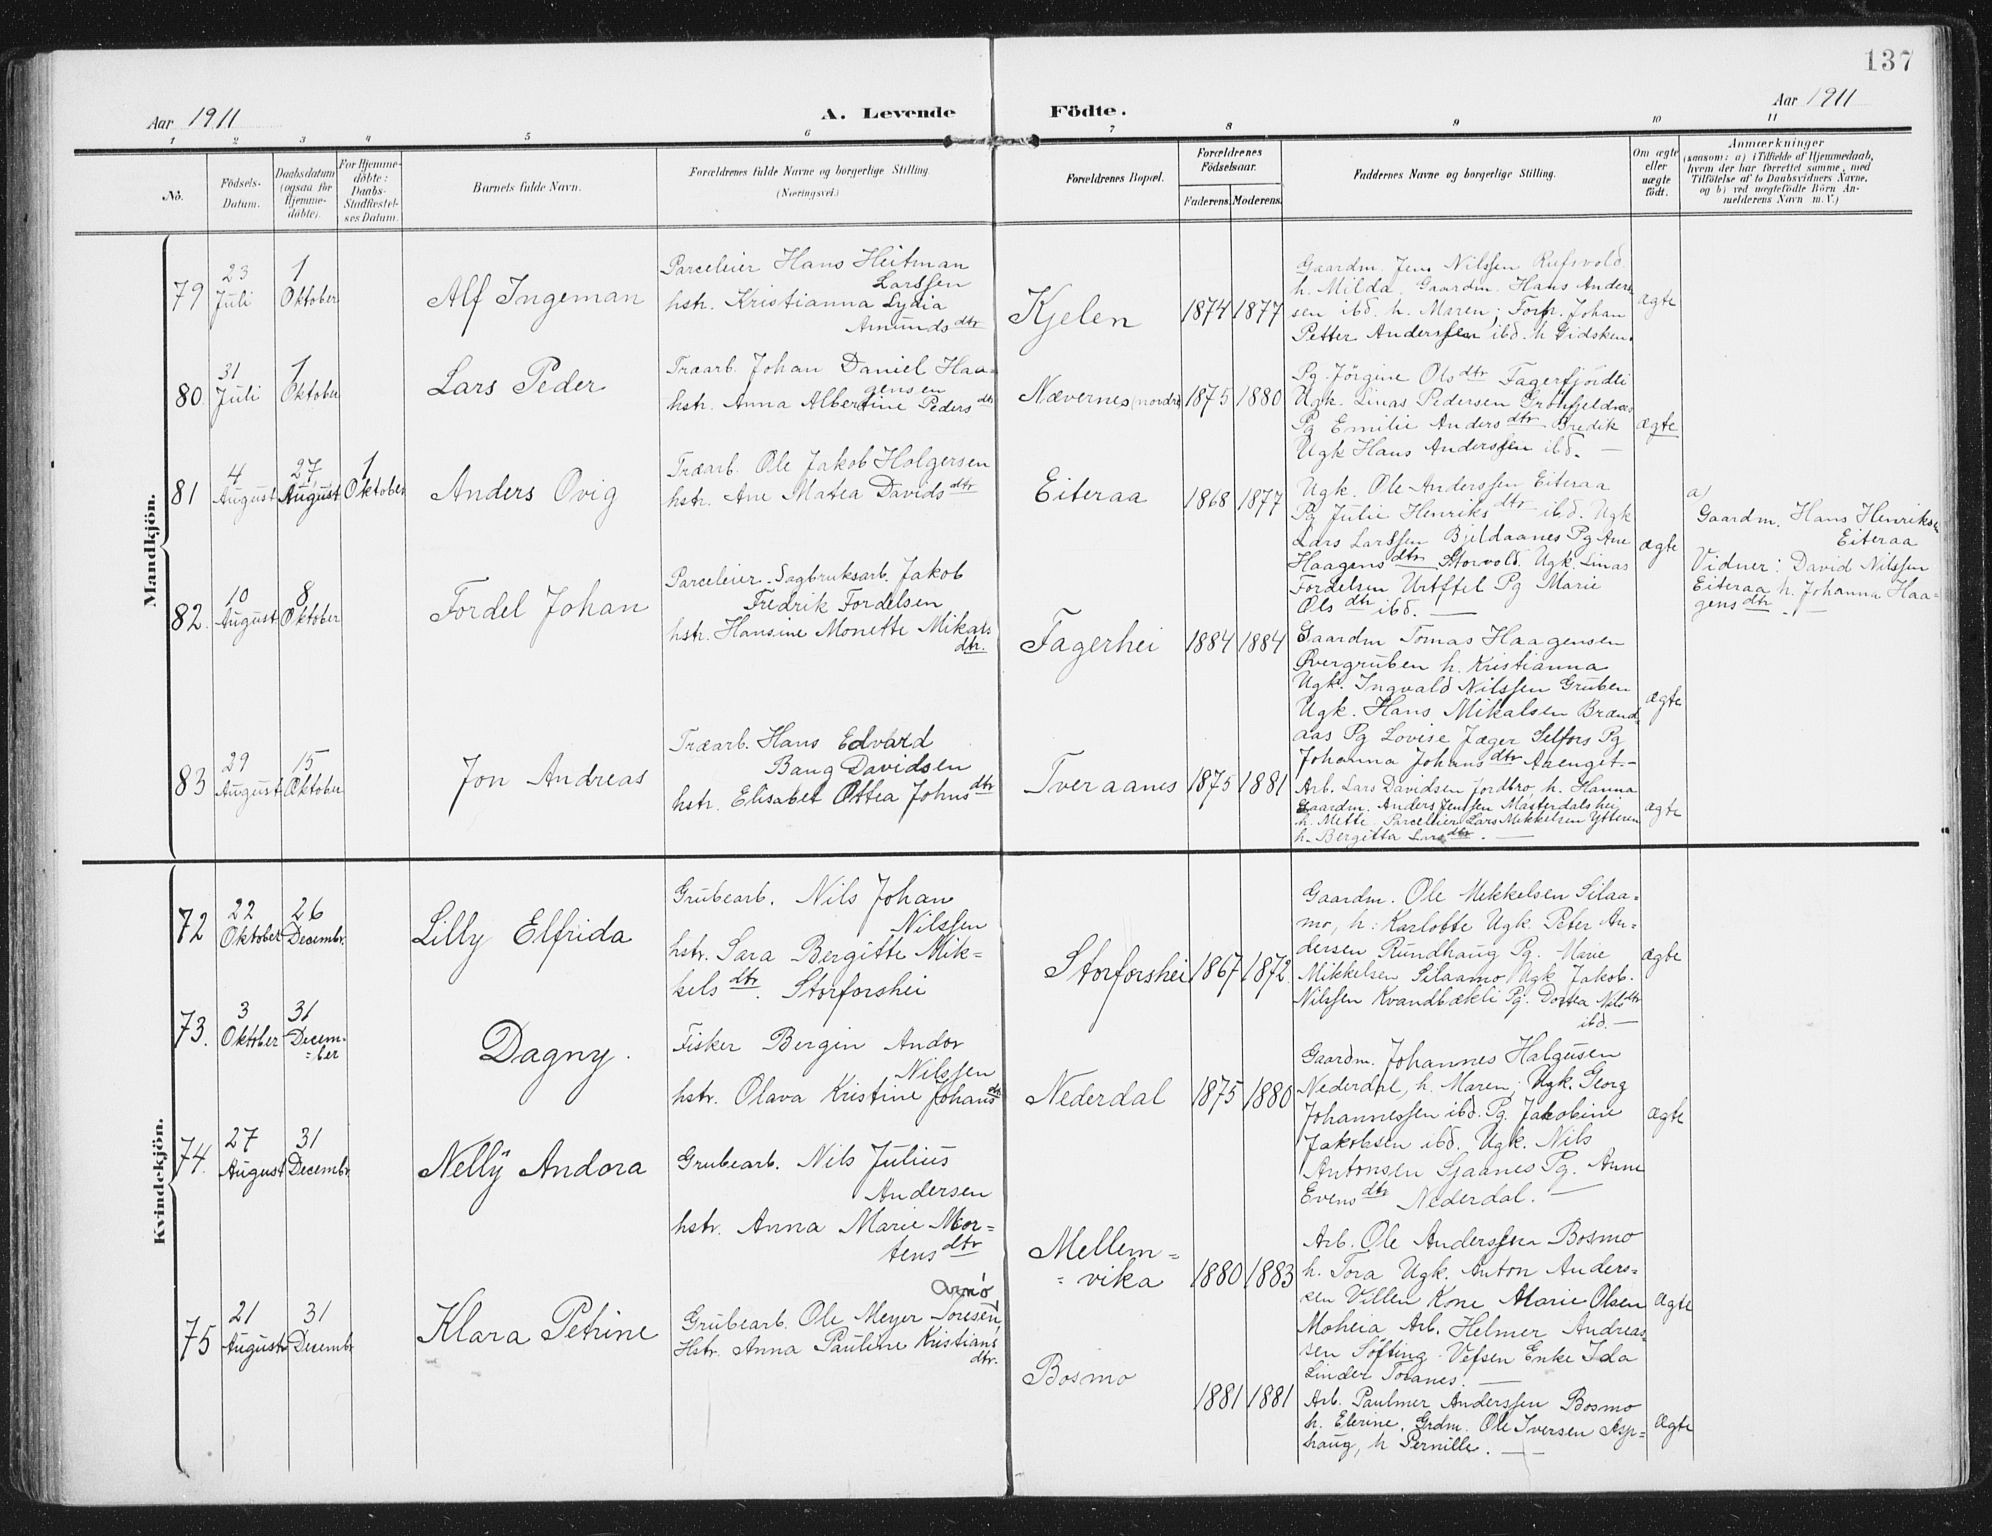 137
Aar 1911
A. Levende Födte.
Aar 1911
1 2 3 4 5 6 7 8 9 10 11
No.
Födsels-
Datum.
Daabsdatum
(ogsaa for
Hjemme-
döbte).
For Hjemme-
döbte:
Daabs-
Stadfæstel-
ses Datum.
Barnets fulde Navn.
Forældrenes fulde Navne og borgerlige Stilling
(Næringsvei)
Forældrenes Bopæl.
Forældrenes
Födselsaar.
Faderens. Moderens.
Faddernes Navne og borgerlige Stilling.
Om ægte
eller
uægte
födt.
Anmærkninger
(saasom: a) i Tilfælde af Hjemmedaab,
hvem der har forrettet samme, med
Tilföielse af to Daabsvidners Navne,
og b) ved uægtefödte Börn An-
melderens Navn m. V.)
Mandkjön.
79
23
Juli
1
Oktober
Alf Ingeman
Parceleier Hans Heitman
Larssen
hstr. Kristianna Lydia
Amunds dtr
Kjelen
1874 1877
Gaardm. Jens Nilssen
h. Milda, Gaardm. Hans Ander
sen ibd. h. Maren; Forp. Johan
Petter Anderssen ibd. h Gidsken.
ægte
80.
31
Juli
1
Oktober
Lars Peder
Træarb. Johan Daniel Haa-
gensen
hstr. Anna Albertine Peders dtr
Nævernes (nordre
1875 1880
Pg. Jörgine Ols dtr Fagerfjordli
Ugk. Linas Pedersen
Pg Emilie Anders dtr Bredik
Ugk Hans Anderssen ibd. —
ægte
81
4
August
27
August
1
Oktober
Anders Ovig
Træarb. Ole Jakob Holgersen
hstr. Ane Matea Davids dtr
Eiteraa
1868 1877
Ugk. Ole Anderssen Eiteraa
Pg Julie Henriks dtr ibd. Ugk
Lars Larssen Bjeldaanes Pg Ane
Haagens dtr Storvold. Ugk. Linas
Fordelsen Urtfjel Pg Marie
Ols dtr ibd. —
ægte
a)
Gaardm. Hans Henriksen
Eiteraa
Vidner: David Nilssen
Eiteraa h. Johanna Haa-
gens dtr. —
82.
10
August
8
Oktober
Fordel Johan
Parceleier - Sagbruksarb. Jakob
Fredrik Fordelsen
hstr. Hansine Monette Mikals
dtr.
Fagerhei
1884 1884
Gaardm Tomas Haagensen
Øvergruben h. Kristianna
Ugk. Ingvald Nilssen Gruben
Ugk. Hans Mikalsen Brænd-
aas Pg Lovise Jæger Selfors Pg
Johanna Johans dtr Aaenget -
ægte
83
29
August
15
Oktober
Jon Andreas
Træarb. Hans Edvard
Bang Davidsen
hstr. Elisabet Ottea Johns dtr
Tveraanes
1875 1881
Arb. Lars Davidsen Jordbro, h. Hanna
Gaardm. Anders Jenssen Masterdalshei
h. Metti. Parcellier Lars Mikkelsen Ytteren
h. Bergitta Lars dtr. —
ægte
Kvindekjön.
72
22
Oktober
26
Decembr.
Lilly Elfrida
Grubearb. Nils Johan
Nilssen
hstr. Sara Bergitte Mik=
kels dtr. Storforshei
Storforshei
1867 1872
Gaardm. Ole Mikkelsen Silaa=
mo, h: Karlotte Ugk. Peter An=
dersen Rundhaug Pg. Marie
Mikkelsen Silaamo, Ugk Jakob.
Nilssen Kvandbækli Pg. Dortea Nils dtr
ibd. —
ægte
73.
3
Oktober
31
Decem-
=ber
Dagny.
Fisker Bergin Andor
Nilssen
hstr. Olava Kristine Johans dtr
Nederdal
1875 1880
Gaardm. Johannes Halgusen
Nederdal, h. Maren; Ugk. Georg
Johannessen ibd. Pg. Jakobine
Jakobsen ibd. Ugk. Nils
Antonsen Sjaanes Pg. Anne
Evens dtr Nederdal. —
ægte
74.
27
August
31
Decembr
Nelly Andora
Grubearb. Nils Julius
Andersen
hstr. Anna Marie Mor=
tens dtr
Mellem=
=vika
1880 1883
Arb. Ole Anderssen Bosmo
h. Tora Ugk. Anton Anders=
sen Villen Kone Marie Olsen
Moheia Arb. Helmer Andreas-
sen Söfting - Vefsen Enke Ida
Linder Toranes. —
Ægte
75
21
August
31
Decembr
Klara Petrine
Grubearb. Ole Meyer Toresen,
Hstr. Anna Pauline Kristians
dtr.
Bosmo
1881 1881
Arb. Paulmer Anderssen Bosmo
h. Elerine. Grdm. Ole Iversen Asp=
haug, h Pernille. —
Ægte